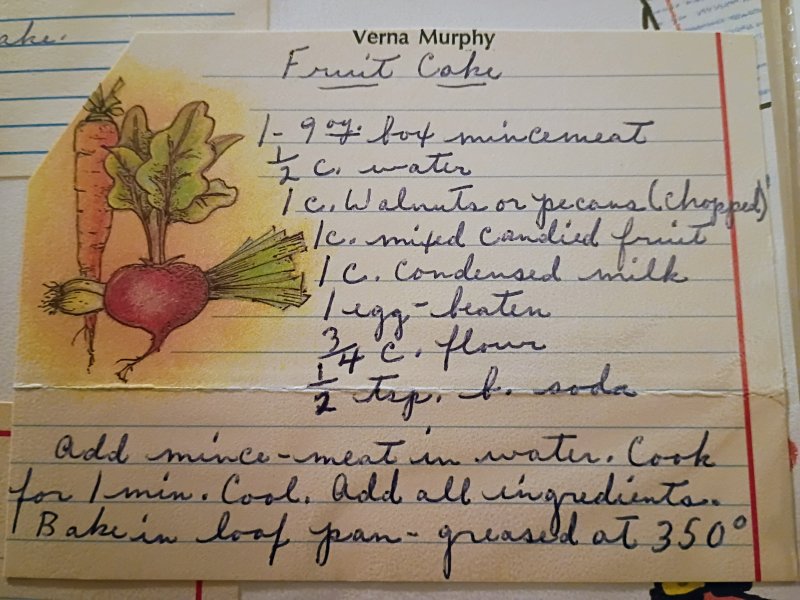 ake.
Verna Murphy
Fruit Cake
1 - 9 oz. box mincemeat
1/2 c. water
1 c. Walnuts or pecans (chopped)
1 c. mixed candied fruit
1 c. condensed milk
1 egg - beaten
3/4 c. flour
1/2 tsp. b. soda
Add mince-meat in water. Cook
for 1 min. Cool. Add all ingredients.
Bake in loaf pan - greased at 350°